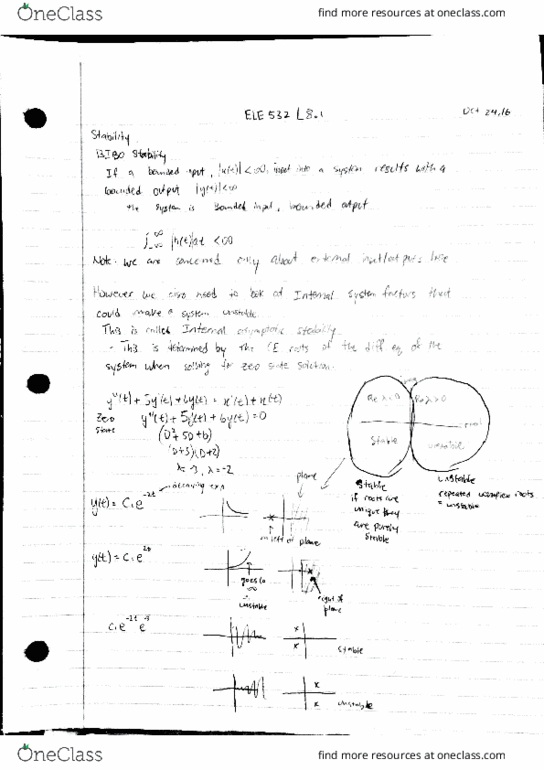 OneClass
find more resources at oneclass.com
ELE 532 L8.1
Oct 24, 16
Stability
BIBO Stability
If a bounded input, |x(t)| < ∞, input into a system results with a
bounded output |y(t)| < ∞
the system is bounded input, bounded output
∫-∞ ∞ |h(t)|dt < ∞
Note. we are concerned only about external input/outputs here
However we also need to look at Internal system factors that
could make a system unstable.
This is called Internal asymptotic stability.
- This is determined by the CE roots of the diff eq of the
system when solving for zero state solution.
y''(t) + 5y'(t) + 6y(t) = x'(t) + x(t)
Zero State
y''(t) + 5y'(t) + 6y(t) = 0
(D²+5D+6)
(D+3)(D+2)
λ=-3, λ=-2
Re λ<0
Re λ>0
real
Stable
unstable
Stable
if roots are
unique they
are
stable
unstable
repeated roots
= unstable
decaying exp
plane
y(t) = C₁e^-2t
on left of plane
y(t) = C₁e^2t
goes to ∞
∴ unstable
right of plane
stable
unstable
OneClass
find more resources at oneclass.com